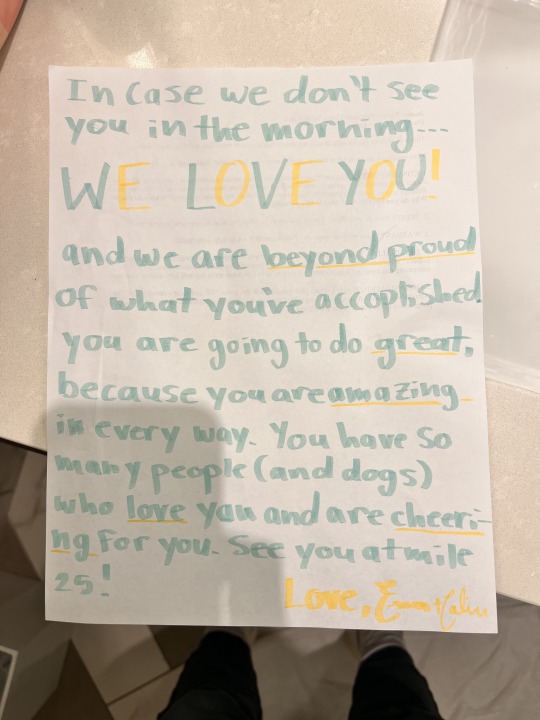 In case we don't see
you in the morning...
WE LOVE YOU!
and we are beyond proud
of what you've accoplished
you are going to do great,
because you are amazing
in every way. You have so
many people (and dogs)
who love you and are cheeri-
ng for you. See you at mile
25!
Love, Emma + Calin